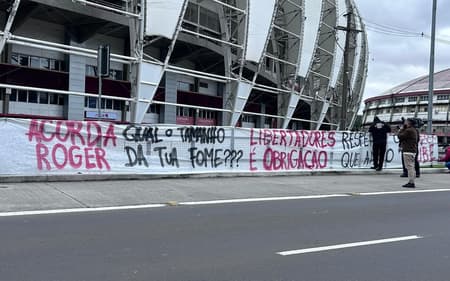 ACORDA
ROGER
QUAL O TAMANHO
DA TUA FOME???
LIBERTADORES
É OBRIGAÇÃO!
QUE